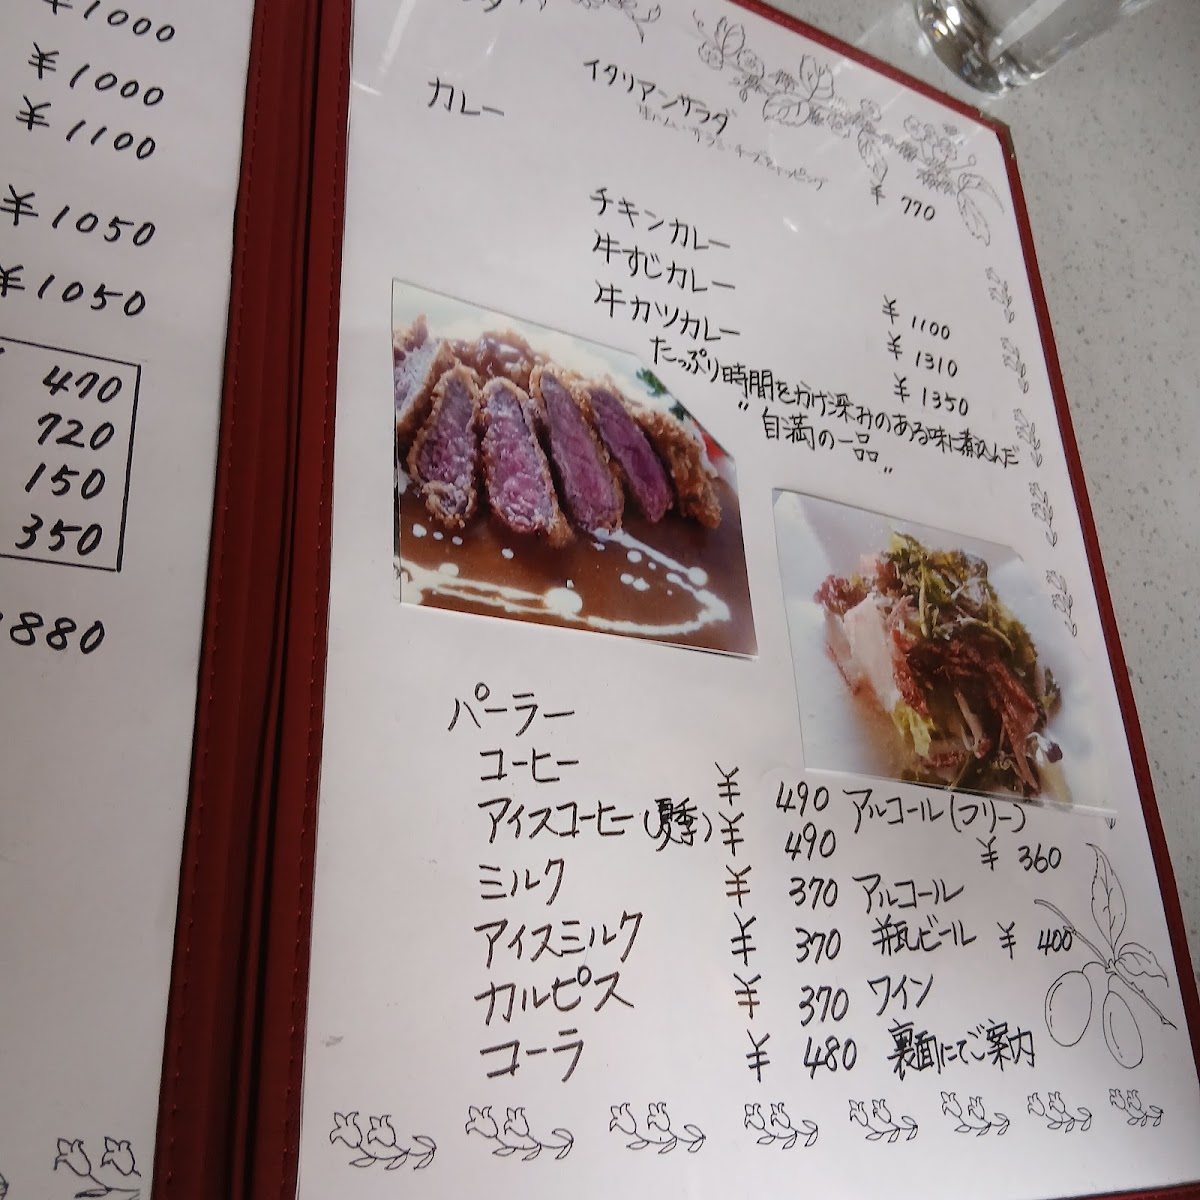 ¥1000
¥1000
¥1100
¥1050
¥1050
470
720
150
350
880
イタリアンサラダ
¥ 770
カレー
チキンカレー ¥ 1100
牛すじカレー ¥ 1310
牛カツカレー ¥ 1350
たっぷり時間をかけ深みのある味に煮込んだ
"自満の一品"
パーラー
コーヒー ¥ 490
アイスコーヒー(夏季) ¥ 490
ミルク ¥ 370
アイスミルク ¥ 370
カルピス ¥ 370
コーラ ¥ 480
アルコール(フリー)
¥ 360
アルコール
瓶ビール ¥ 400
ワイン
裏面にてご案内